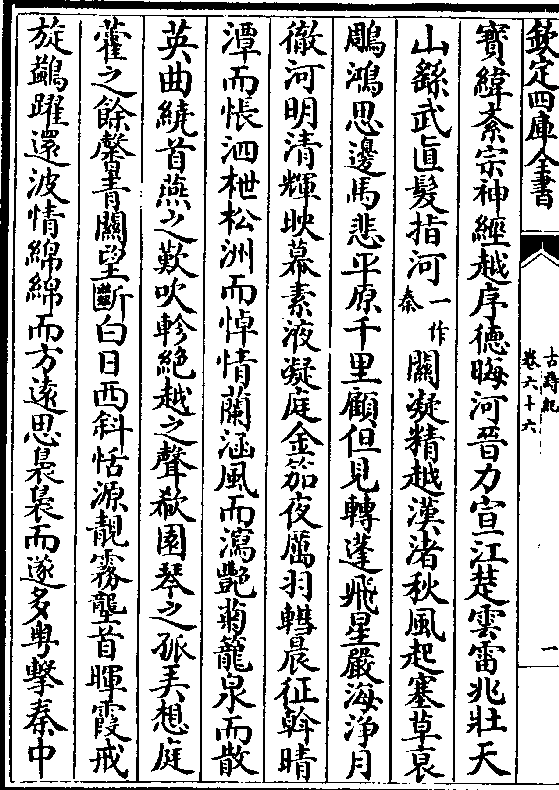 欽定四庫全書
古詩紀
卷六十六
一
寶緯紊宗神經越序德晦河晉力宣江楚雲雷兆壯天
山繇武直髮指河一作秦關凝精越漢渚秋風起塞草哀
鵰鴻思邊馬悲平原千里顧但見轉蓬飛星嚴海淨月
徹河明清輝映幕素液凝庭金笳夜厲羽轊晨征斡晴
潭而悵泗枻松洲而悼情蘭涵風而瀉艷菊籠泉而散
英曲繞首燕之歎吹軫絶越之聲欷園琴之孤弄想庭
藿之餘馨青關望斷白日西斜恬源靚霧壟首暉霞戒
旋鷁躍還波情綿綿而方遠思裊裊而遂多粤擊秦中